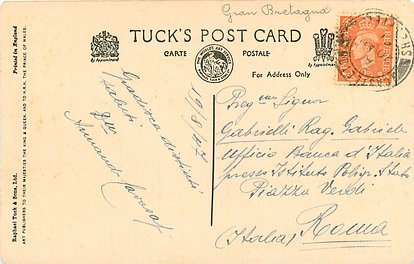 Gran Bretagna
TUCK'S POST CARD
CARTE POSTALE
by Appointment
by Appointment
For Address Only
Printed in England
Raphael Tuck & Sons, Ltd.
ART PUBLISHERS TO THEIR MAJESTIES THE KING & QUEEN, AND TO H.R.H. THE PRINCE OF WALES.
19/8/47
Gradisca distinti
saluti
Armando
Preg. Signor
Gabrielli Rag. Gabriele
Ufficio Banca d'Italia
presso Istituto Poligr. Stato
Piazza Verdi
Roma
(Italia)